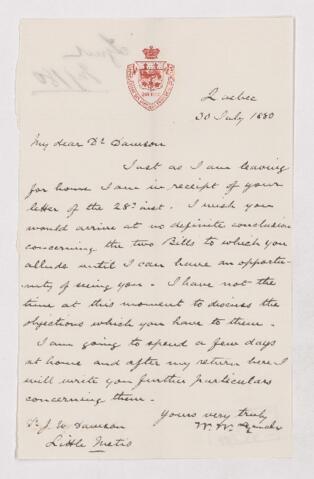 Lynch
Quebec
30 July 1880
My dear Dr Dawson
Just as I am leaving
for home I am in receipt of your
letter of the 28th inst. I wish you
would arrive at no definite conclusion
concerning the two Bills to which you
allude until I can have an opportu-
nity of seeing you. I have not the
time at this moment to discuss the
objections which you have to them.
I am going to spend a few days
at home and after my return here I
will write you further particulars
concerning them.
Yours very truly
W. W. Lynch
Dr J. W. Dawson
Little Metis